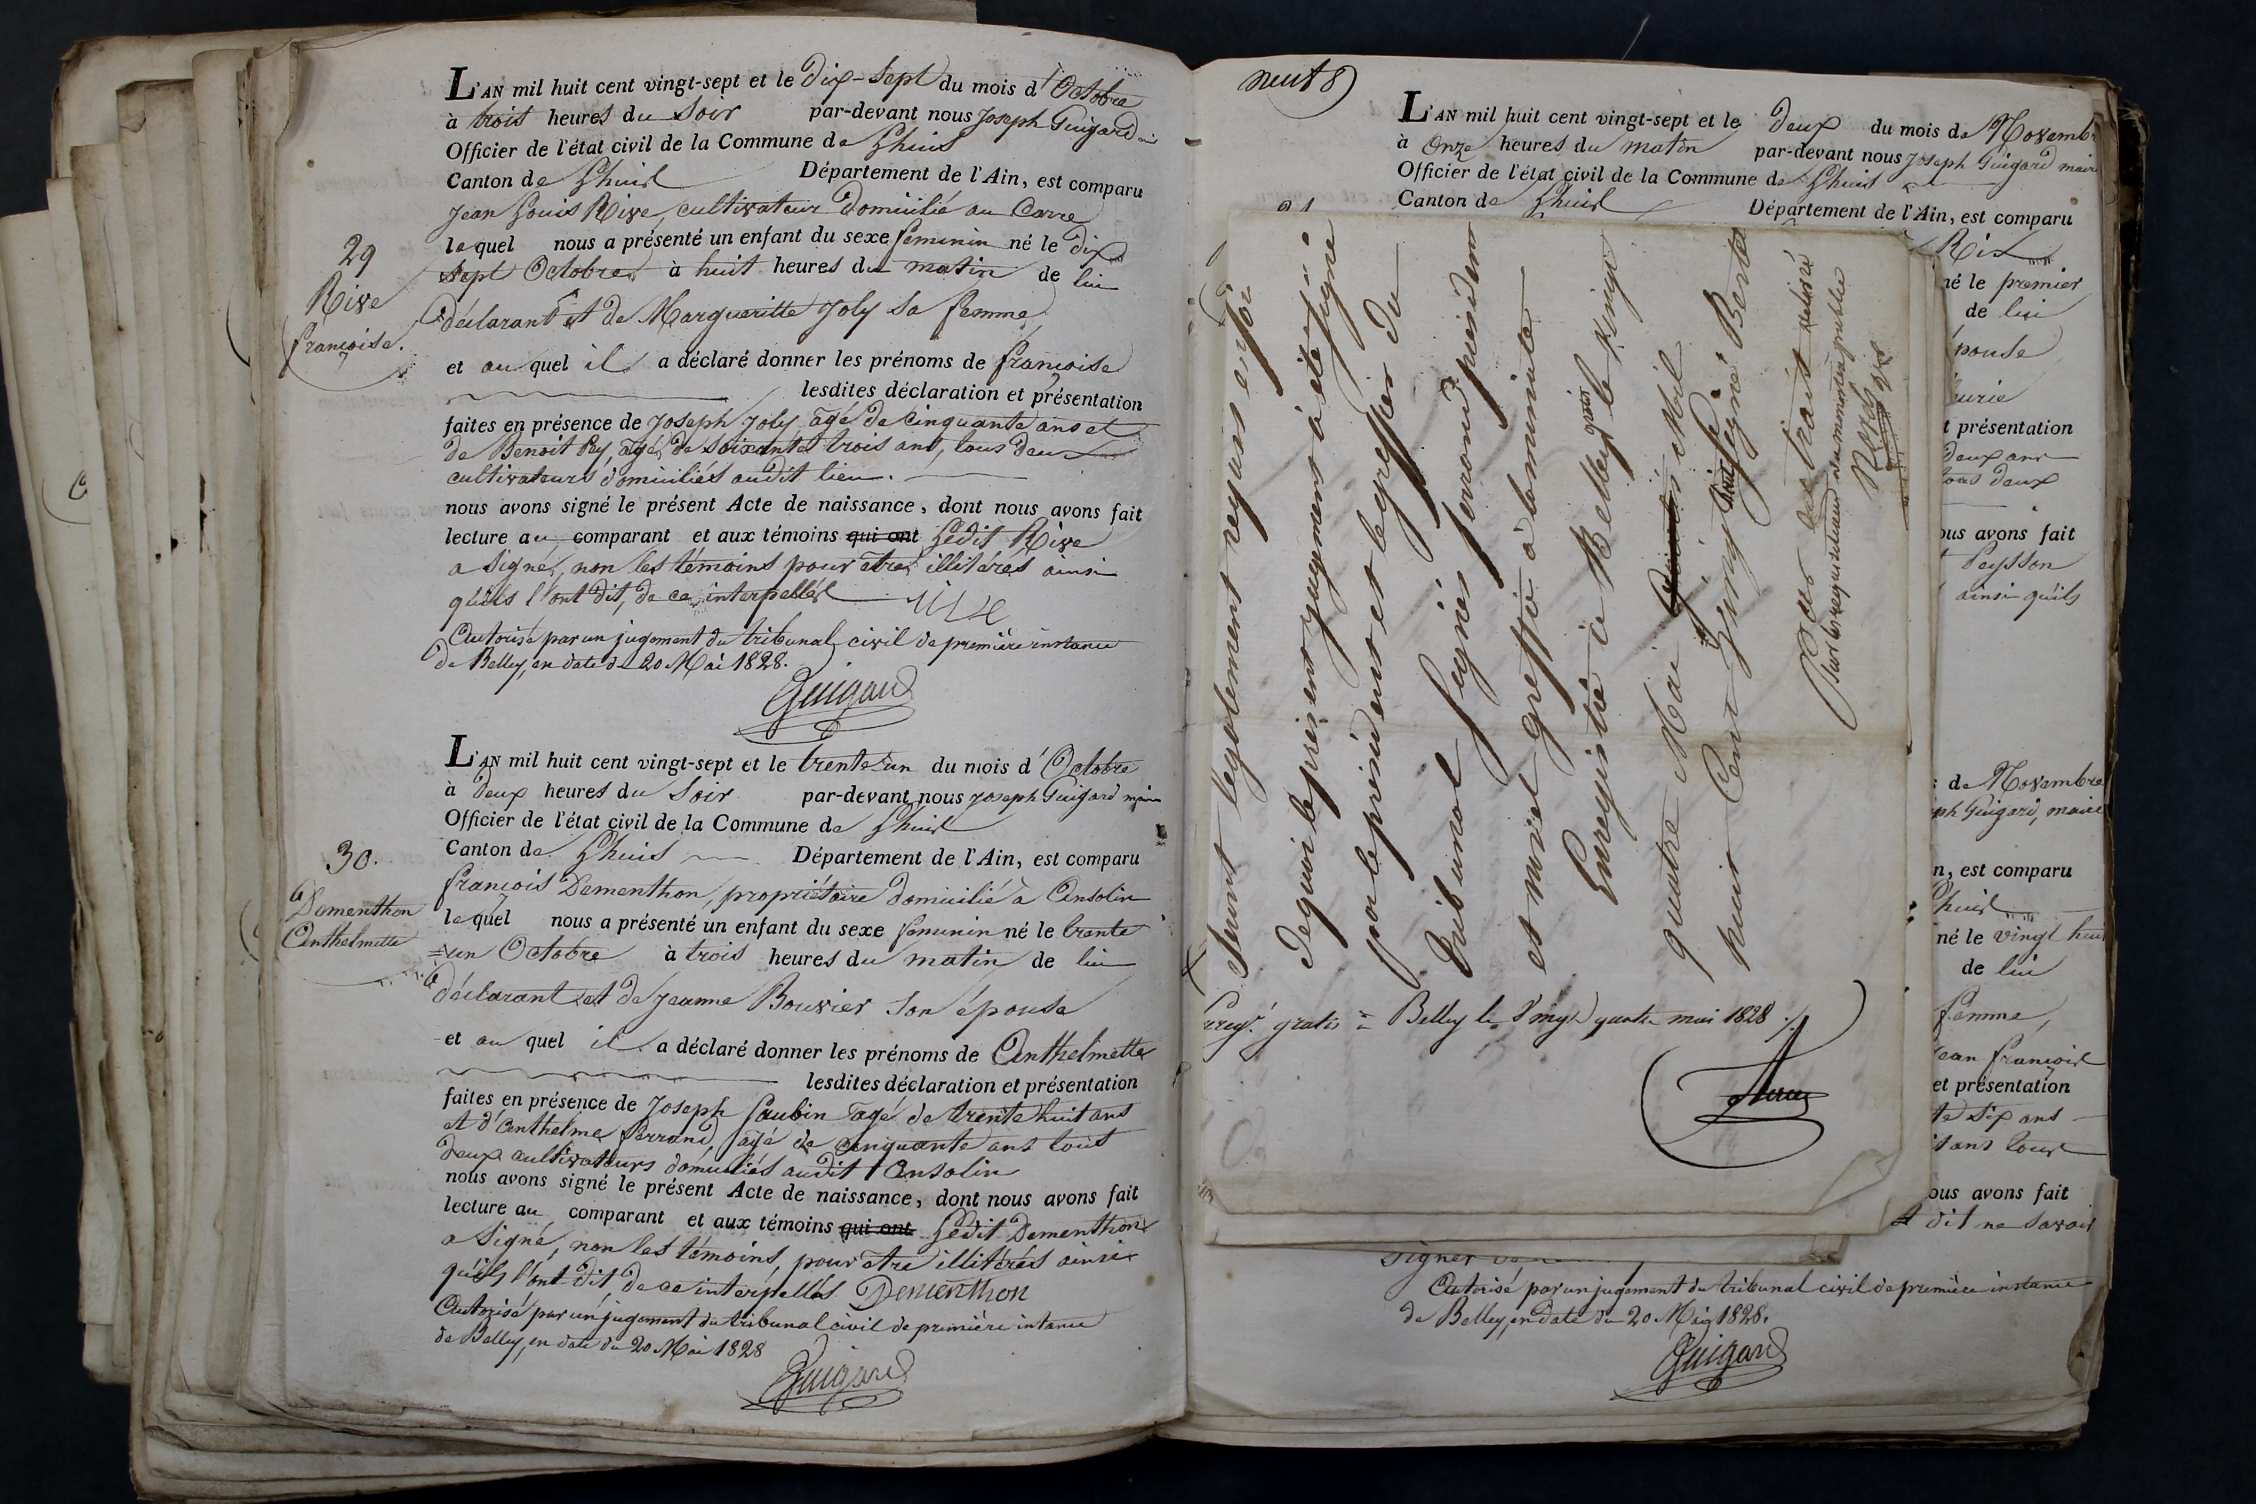 L'AN mil huit cent vingt-sept et le Dix-Sept du mois d'Octobre
à trois heures du Soir par-devant nous Joseph Guigard
Officier de l'état civil de la Commune de Lhuis
Canton de Lhuis Département de l'Ain, est comparu
Jean Louis Rive, cultivateur domicilié au Carre
lequel nous a présenté un enfant du sexe feminin né le dix
Sept Octobre à huit heures du matin de lui
29
Rive
françoise.
déclarant et de Margueritte Joly sa femme
et au quel il a déclaré donner les prénoms de françoise
lesdites déclaration et présentation
faites en présence de Joseph Joly, agé de cinquante ans et
de Benoit Pey, agé de soixante trois ans, tous deux
cultivateurs domiciliés audit lieu.
nous avons signé le présent Acte de naissance, dont nous avons fait
lecture au comparant et aux témoins qui ont Ledit Rive
a signé, non les témoins pour être illitérés ainsi
qu'ils l'ont dit, de ce interpellés
Autorisé par un jugement du tribunal civil de première instance
de Belley, en date du 20 Mai 1828.
Guigard
L'AN mil huit cent vingt-sept et le trente un du mois d'Octobre
à Deux heures du Soir par-devant nous Joseph Guigard maire
Officier de l'état civil de la Commune de Lhuis
Canton de Lhuis Département de l'Ain, est comparu
françois Dementhon, propriétaire domicilié à Ansolin
lequel nous a présenté un enfant du sexe feminin né le trente
un Octobre à trois heures du matin de lui
30.
Dementhon
Anthelmette
déclarant et de Jeanne Bouvier son épouse
et au quel il a déclaré donner les prénoms de Anthelmette
lesdites déclaration et présentation
faites en présence de Joseph Gaubin agé de trente huit ans
et d'Anthelme ferrand, agé de cinquante ans tous
deux cultivateurs domiciliés audit Ansolin
nous avons signé le présent Acte de naissance, dont nous avons fait
lecture au comparant et aux témoins qui ont Ledit Dementhon
a signé, non les témoins, pour être illitérés ainsi
qu'ils l'ont dit, de ce interpellés Dementhon
Autorisé par un jugement du tribunal civil de première intance
de Belley, en date du 20 Mai 1828
Guigard
neuf 8
L'AN mil huit cent vingt-sept et le deux du mois de Novemb
à Onze heures du matin par-devant nous Joseph Guigard maire
Officier de l'état civil de la Commune de Lhuis
Canton de Lhuis Département de l'Ain, est comparu
Rix
né le premier
de lui
épouse
présentation
deux ans
tous deux
ous avons fait
Peysson
ainsi qu'ils
Seront légalement requis en foi
de quoi le présent jugement a été signé
par le président et le greffier de
tribunal Signés ferrand président
et nivet greffier à la minute
Enregistré à Belley gratis le vingt
quatre Mai mil
huit Cent vingt huit Signé: Berte
Pour extrait délivré
sur la requisition du ministère public
gratis à Belley le vingt quatre mai 1828
de Novembre
ph Guigard, maire
n, est comparu
Lhuis
né le vingt huit
de lui
femme,
Jean françois
et présentation
te six ans
ous avons fait
dit ne savoir
signer
Autorisé par un jugement du tribunal civil de première instance
de Belley, en date du 20 Mai 1828.
Guigard